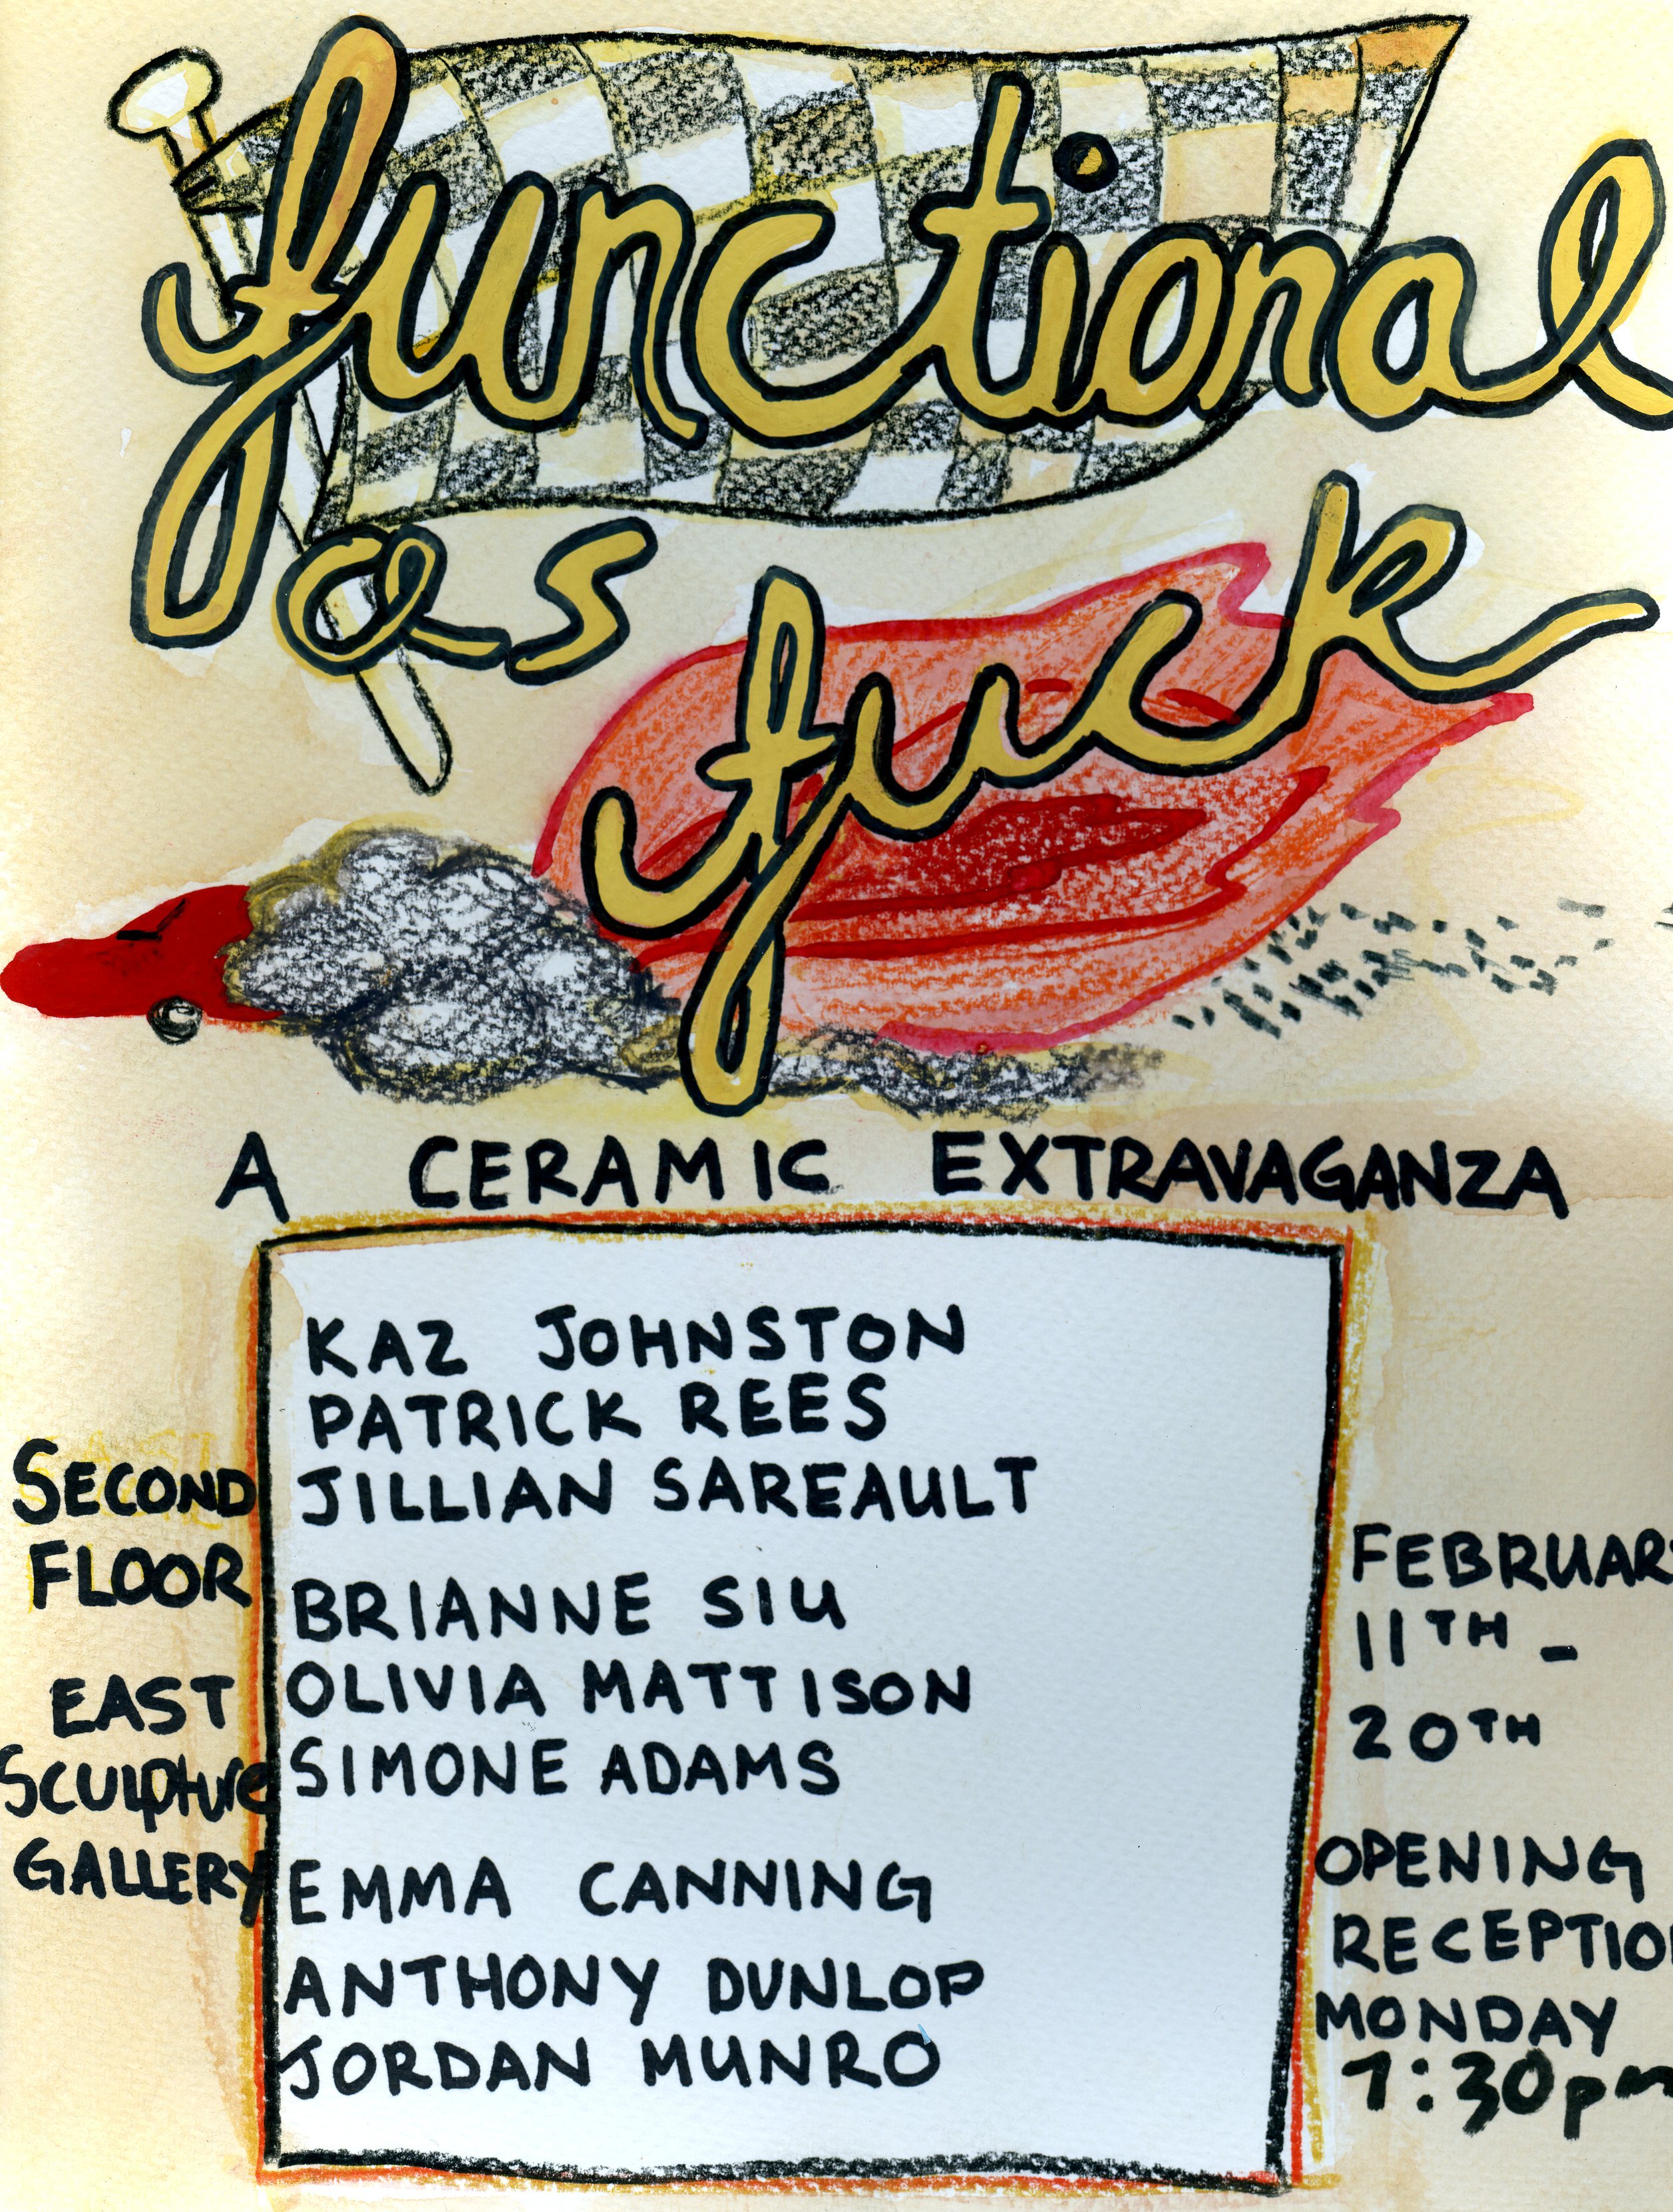 functional
as
fuck
A CERAMIC EXTRAVAGANZA
KAZ JOHNSTON
PATRICK REES
JILLIAN SAREAULT
BRIANNE SIU
OLIVIA MATTISON
SIMONE ADAMS
EMMA CANNING
ANTHONY DUNLOP
JORDAN MUNRO
SECOND
FLOOR
EAST
SCULPTURE
GALLERY
FEBRUAR
11TH -
20TH
OPENING
RECEPTIO
MONDAY
7:30pm